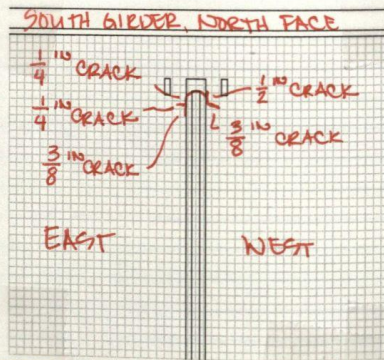 SOUTH GIRDER, NORTH FACE
1/4 IN CRACK
1/4 IN CRACK
3/8 IN CRACK
1/2 IN CRACK
3/8 IN CRACK
EAST
WEST